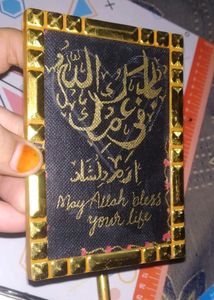 بارك الله
في عمرك
دلشاد
May Allah bless
your life